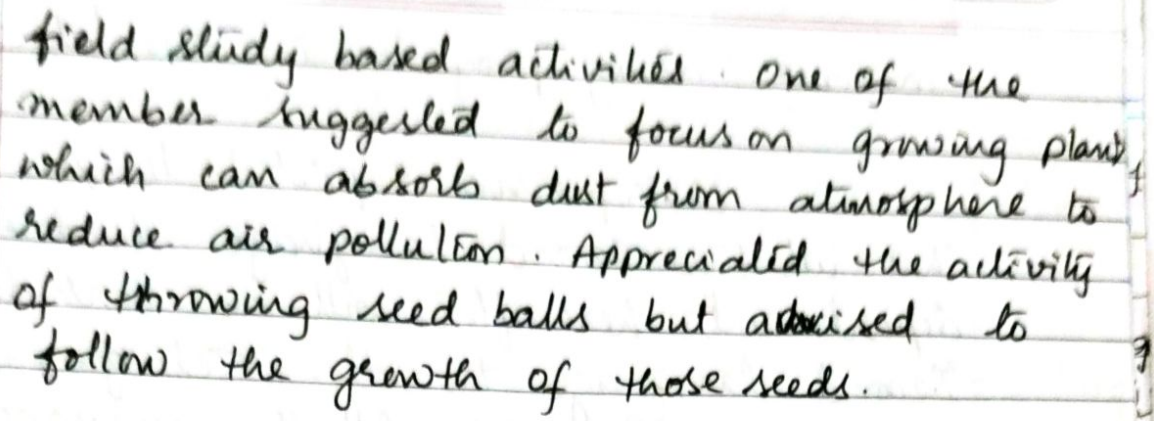 field study based activities. One of the
member suggested to focus on growing plants
which can absorb dust from atmosphere to
reduce air pollution. Appreciated the activity
of throwing seed balls but advised to
follow the growth of those seeds.